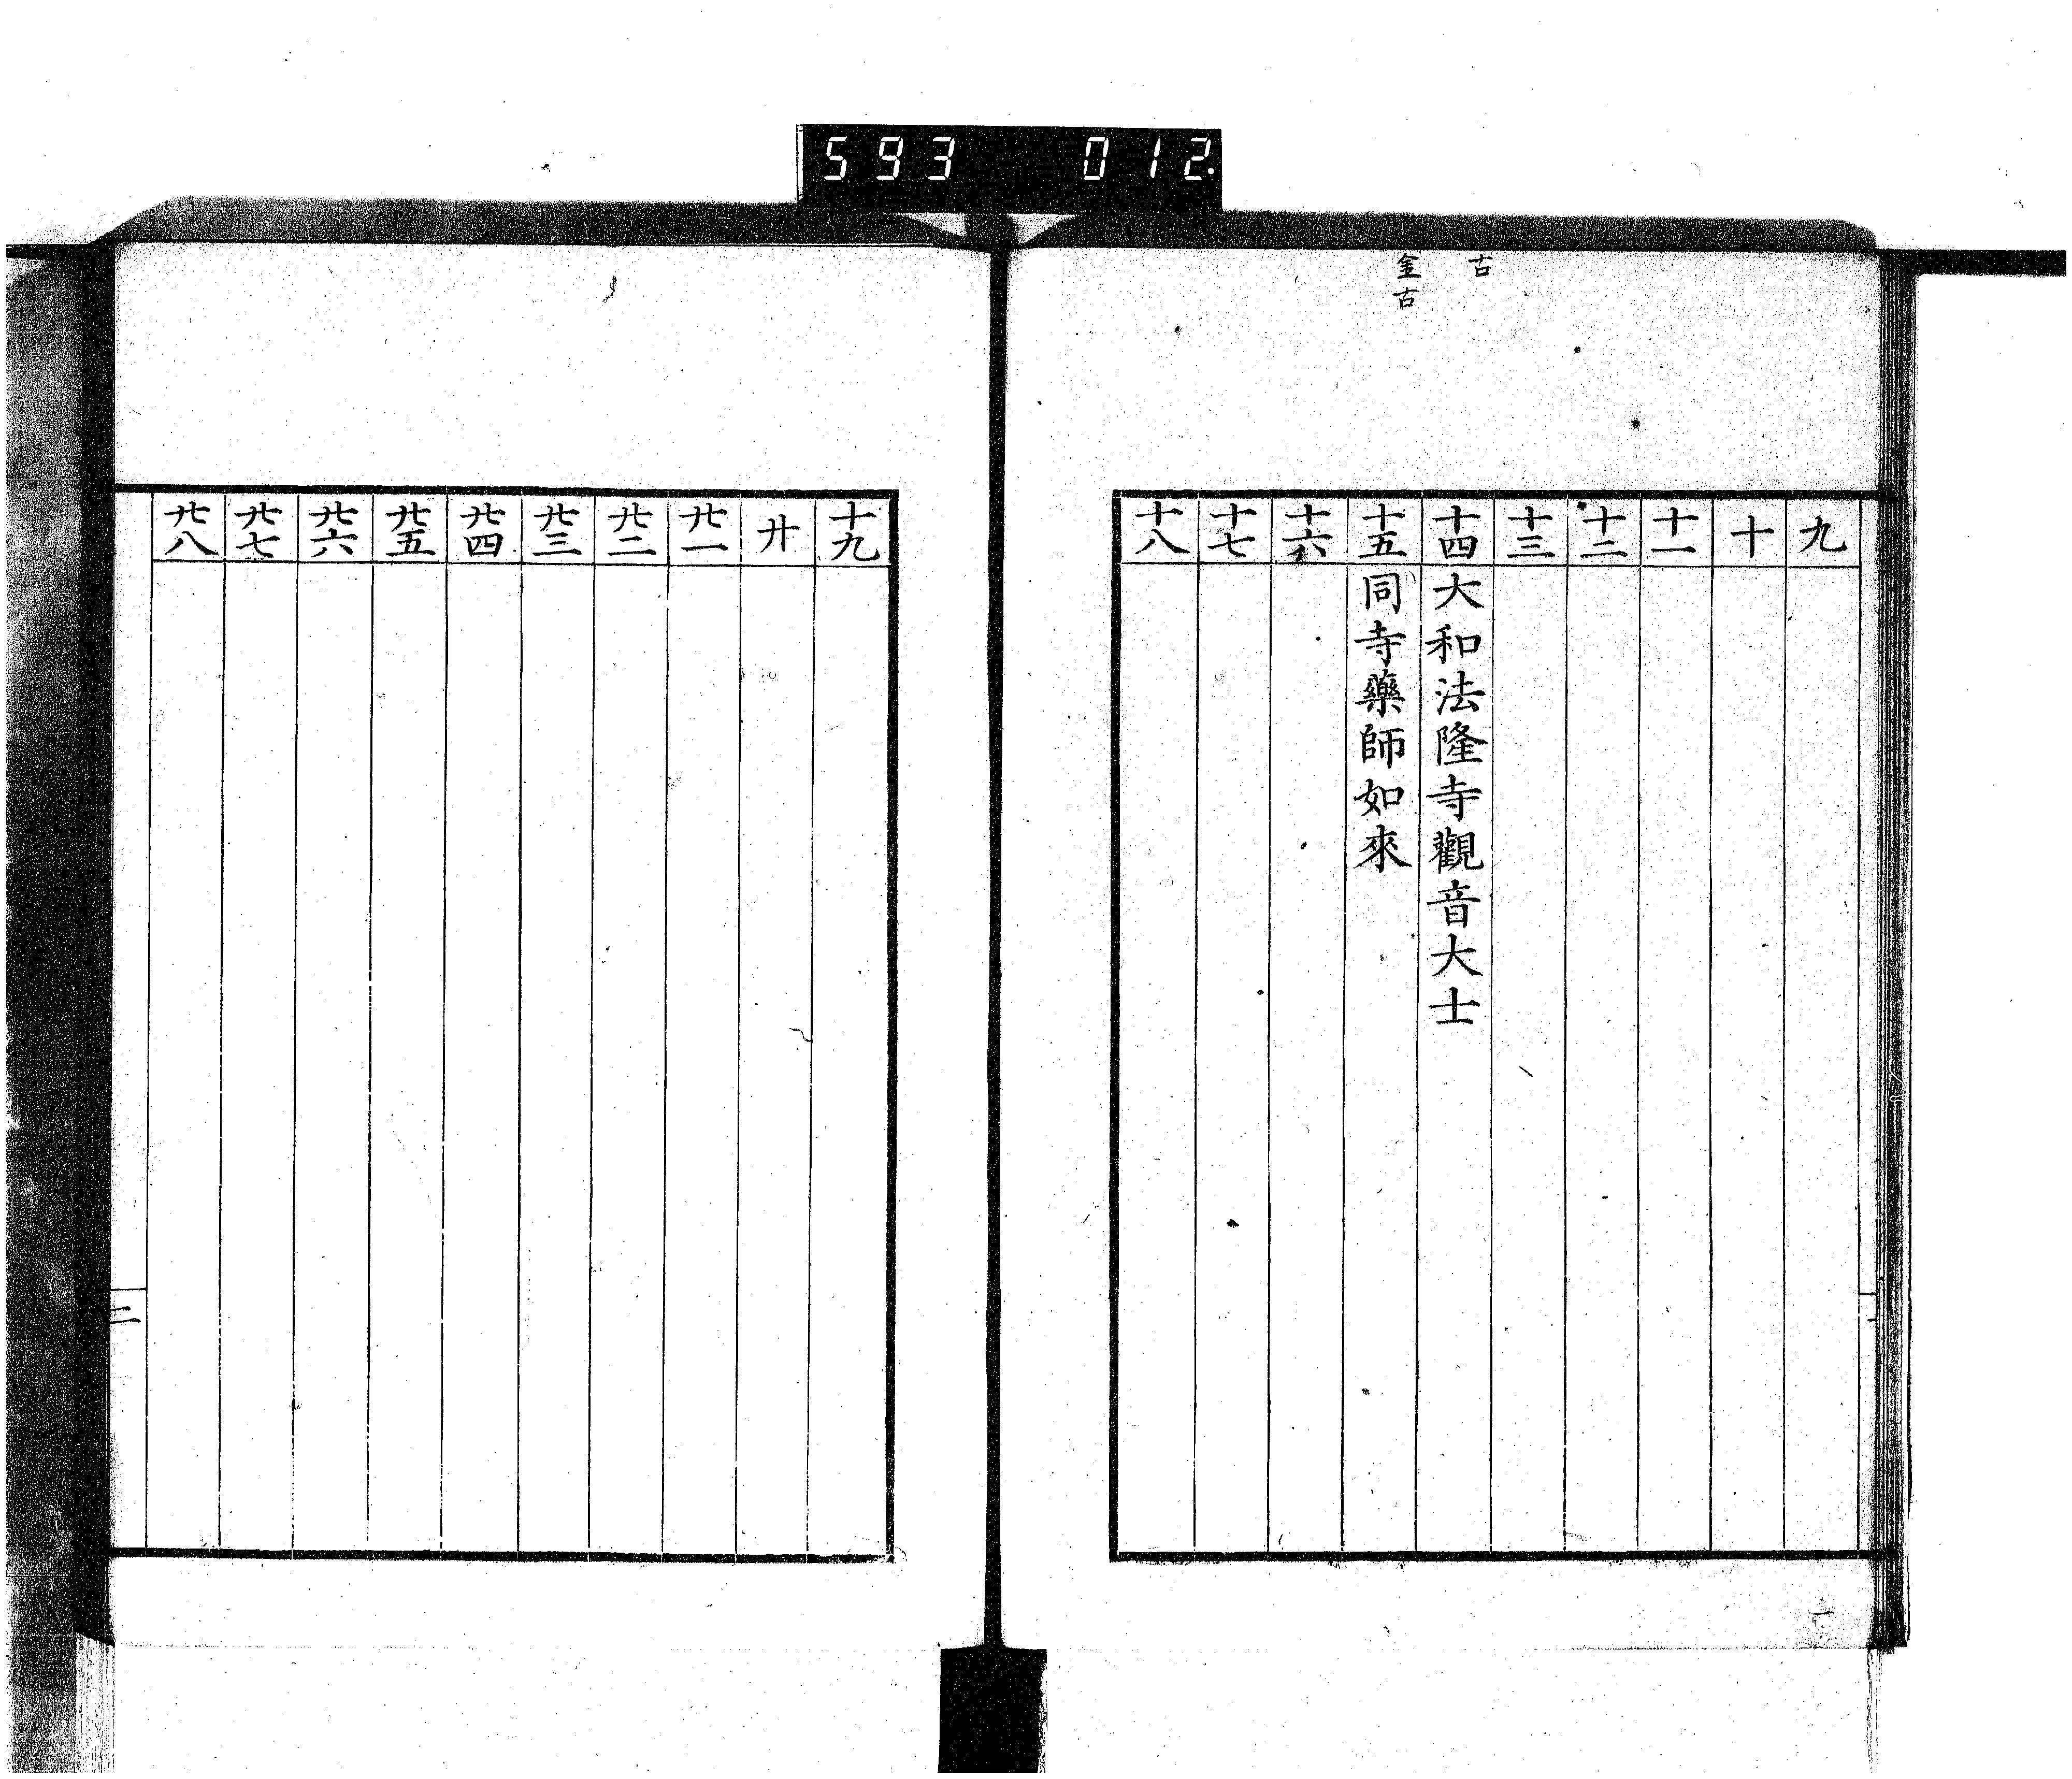 593 012
古
金古
九
十
十一
十二
十三
十四 大和法隆寺觀音大士
十五 同寺藥師如來
十六
十七
十八
十九
廾
廿一
廿二
廿三
廿四
廿五
廿六
廿七
廿八
三